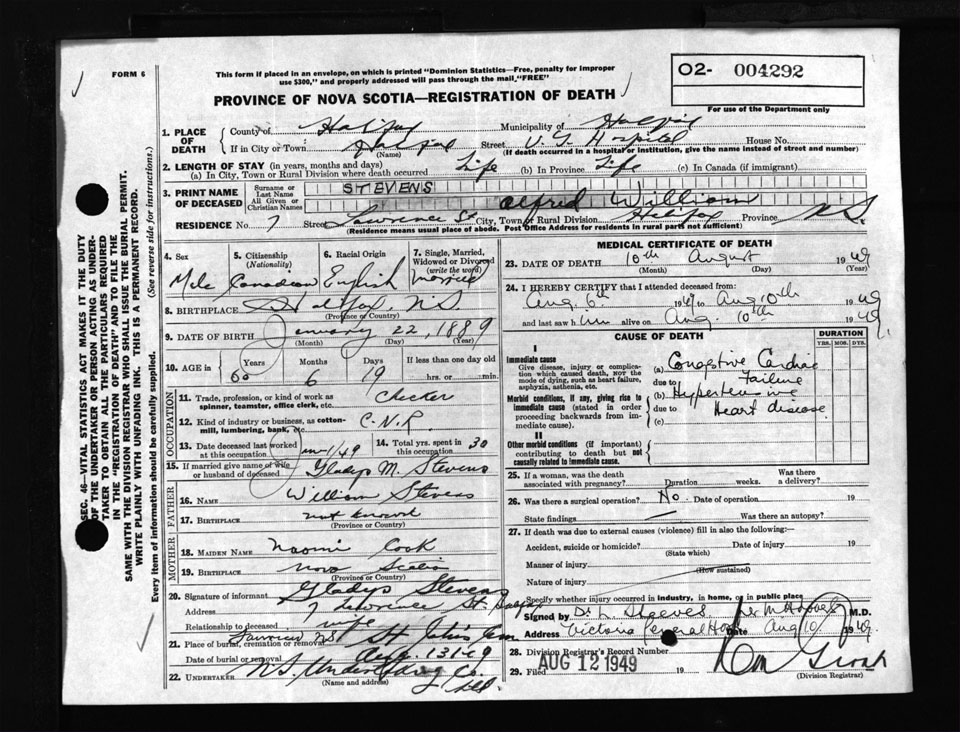 FORM 6
This form if placed in an envelope, on which is printed "Dominion Statistics—Free, penalty for improper
use $300," and properly addressed will pass through the mail, "FREE"
O2- 004292
For use of the Department only
PROVINCE OF NOVA SCOTIA—REGISTRATION OF DEATH
SEC. 46—VITAL STATISTICS ACT MAKES IT THE DUTY
OF THE UNDERTAKER OR PERSON ACTING AS UNDER-
TAKER TO OBTAIN ALL THE PARTICULARS REQUIRED
IN THE "REGISTRATION OF DEATH" AND TO FILE THE
SAME WITH THE DIVISION REGISTRAR WHO SHALL ISSUE THE BURIAL PERMIT.
WRITE PLAINLY WITH UNFADING INK. THIS IS A PERMANENT RECORD.
Every item of information should be carefully supplied. (See reverse side for instructions.)
1. PLACE OF DEATH
County of Halifax Municipality of Halifax
If in City or Town Halifax Street V. G. Hospital House No.
(Name) (If death occurred in a hospital or institution, give the name instead of street and number)
2. LENGTH OF STAY (in years, months and days)
(a) In City, Town or Rural Division where death occurred Life (b) In Province Life (c) In Canada (if immigrant)
3. PRINT NAME OF DECEASED
Surname or Last Name STEVENS
All Given or Christian Names Alfred William
RESIDENCE No. 7 Street Lawrence St City, Town or Rural Division Halifax Province N.S.
(Residence means usual place of abode. Post Office Address for residents in rural parts not sufficient)
4. Sex 5. Citizenship (Nationality) 6. Racial Origin 7. Single, Married, Widowed or Divorced (write the word)
Male Canadian English married
8. BIRTHPLACE Halifax, N.S.
(Province or Country)
9. DATE OF BIRTH January 22, 1889
(Month) (Day) (Year)
10. AGE in Years Months Days If less than one day old
60 6 19 hrs. or min.
OCCUPATION
11. Trade, profession, or kind of work as spinner, teamster, office clerk, etc. Checker
12. Kind of industry or business, as cotton-mill, lumbering, bank, etc. C.N.R.
13. Date deceased last worked at this occupation Jan 1/49 14. Total yrs. spent in 30
15. If married give name of wife or husband of deceased Gladys M. Stevens
FATHER
16. Name William Stevens
17. Birthplace not known
(Province or Country)
MOTHER
18. MAIDEN NAME Naomi Cook
19. BIRTHPLACE Nova Scotia
(Province or Country)
20. Signature of informant Gladys Stevens
Address 7 Lawrence St. Halifax
Relationship to deceased wife
21. Place of burial, cremation or removal Fairview N.S. St. John's Cem
Date of burial or removal Aug. 13 1949
22. UNDERTAKER N.S. Undertaking Co. Ltd.
(Name and address)
MEDICAL CERTIFICATE OF DEATH
23. DATE OF DEATH 10th August 1949
(Month) (Day) (Year)
24. I HEREBY CERTIFY that I attended deceased from:
Aug. 6th 1949 to Aug 10th 1949
and last saw him alive on Aug. 10th 1949
CAUSE OF DEATH DURATION
YRS. MOS. DYS.
I
Immediate cause
Give disease, injury or complication which caused death, NOT the mode of dying, such as heart failure, asphyxia, asthenia, etc.
(a) Congestive Cardiac Failure
due to
Morbid conditions, if any, giving rise to immediate cause (stated in order proceeding backwards from immediate cause).
(b) Hypertensive Heart disease
due to
(c)
II
Other morbid conditions (if important) contributing to death but not causally related to immediate cause.
25. If a woman, was the death associated with pregnancy? Duration weeks. Was there a delivery?
26. Was there a surgical operation? No. Date of operation 19
State findings Was there an autopsy?
27. If death was due to external causes (violence) fill in also the following:—
Accident, suicide or homicide? Date of injury 19
(State which)
Manner of injury
(How sustained)
Nature of injury
Specify whether injury occurred in industry, in home, or in public place
Signed by Dr. Steeves M.D.
Address Victoria General Hosp Date Aug 10 1949
28. Division Registrar's Record Number
29. Filed AUG 12 1949 19
(Division Registrar)